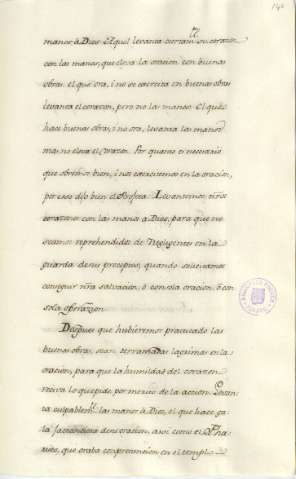 140
manos à Dios. Aquèl levanta tierra su corazon
con las manos, que eleva la oración con buenas
obras. el que ora, i no se exercita en buenas obras
levanta el corazon, pero no las manos. El que
hace buenas obras, i no ora, levanta las manos
mas no eleva el corazon. Por quanto es necesario
que obremos bien, i nos exercitemos en la oración,
por esso dijo bien el Profeta: Levantemos nr̃os
corazones con las manos à Dios, para que no
seamos reprehendidos de Negligentes en la
guarda de sus preceptos, quando
conseguir nr̃a salvación, ò con sola oracion, ò con
sola operazion.
Despues que hubieremos practicado las
buenas obras, sean derramadas lagrimas en la
oración, para que la humildad del corazon
reciva lo que pide por merito de la accion. Levan
ta culpablemte las manos à Dios, el que hace ga
la jactandose de su oracion, assi como el Pha
riseo, que oraba con presumcion en el templo